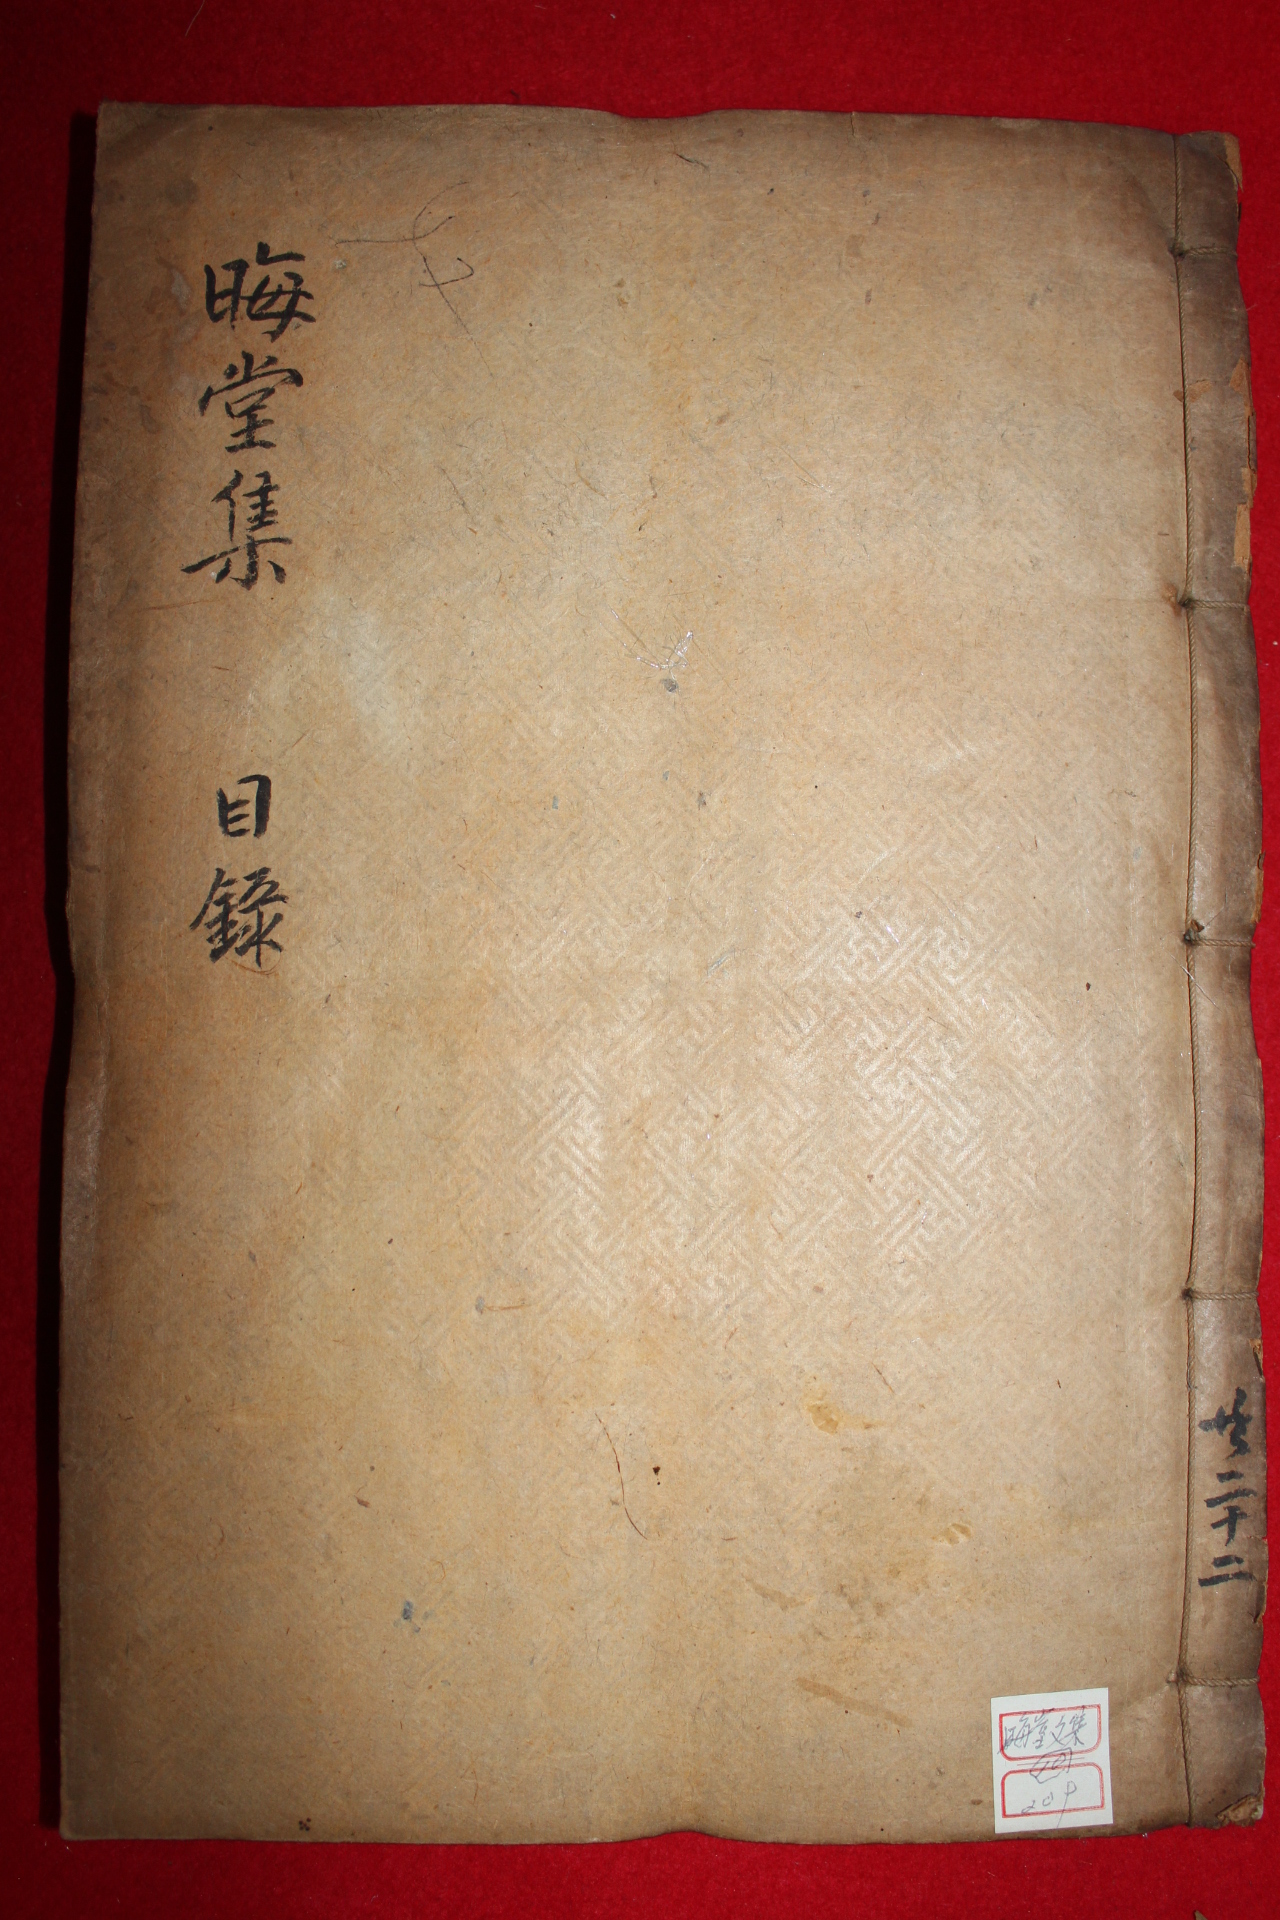 晦堂集 目錄
共二十二
晦堂文集
209